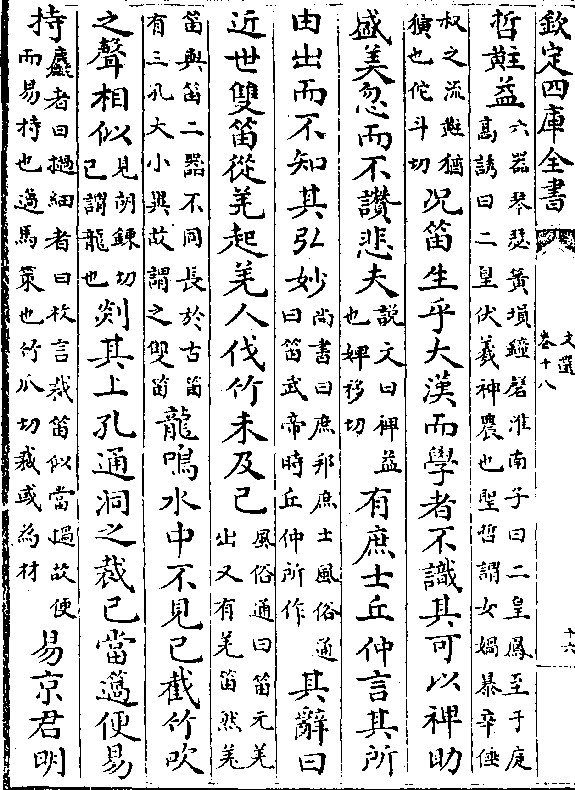 欽定四庫全書
文選
卷十八
十六
哲黈益
六器琴瑟簧塤鐘磬淮南子曰二皇鳳至于庭
高誘曰二皇伏羲神農也聖哲謂女媧暴辛倕
叔之流黈猶
獷也佗斗切
况笛生乎大漢而學者不識其可以裨助
盛美忽而不讚悲夫
說文曰裨益
也婢移切
有庶士丘仲言其所
由出而不知其弘妙
尚書曰庶邦庶士風俗通
曰笛武帝時丘仲所作
其辭曰
近世雙笛從羌起羌人伐竹未及已
風俗通曰笛元羌
出又有羌笛然羌
笛與笛二器不同長於古笛
有三孔大小異故謂之雙笛
龍鳴水中不見已截竹吹
之聲相似
見胡鍊切
已謂龍也
剡其上孔通洞之裁已當簻便易
持
麤者曰撾細者曰枚言裁笛似當撾故便
而易持也簻馬策也竹爪切裁或為材
易京君明